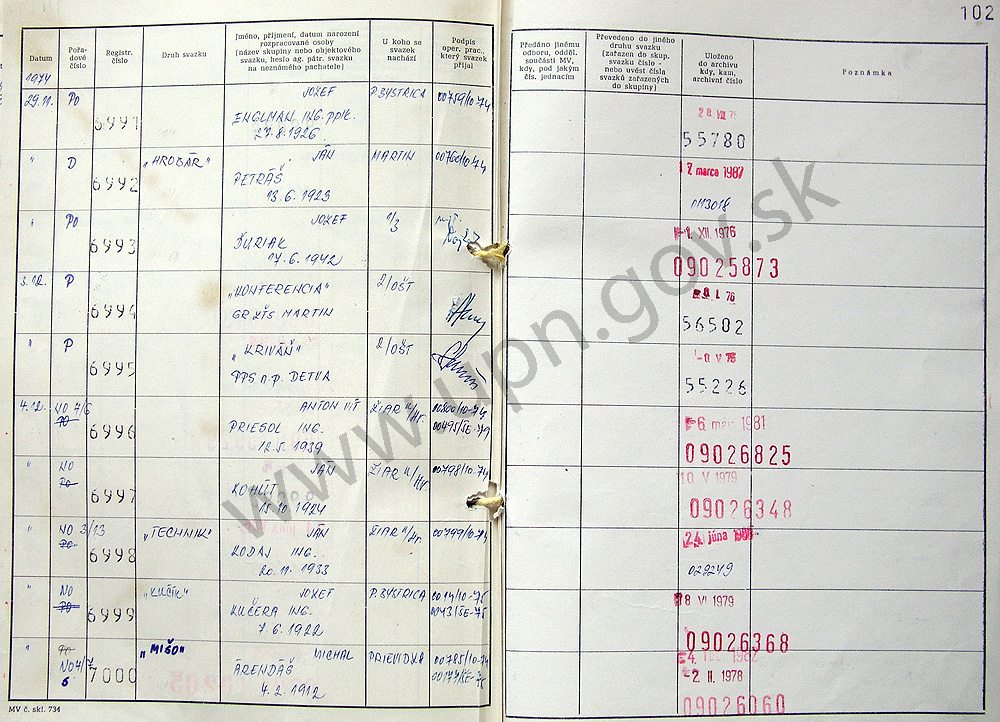 102
Datum
Pořa-
dové
číslo
Registr.
číslo
Druh svazku
Jméno, příjmení, datum narození
rozpracované osoby
(název skupiny nebo objektového
svazku, heslo ag. pátr. svazku
na neznámého pachatele)
U koho se
svazek
nachází
Podpis
oper. prac.,
který svazek
přijal
Předáno jinému
odboru, odděl.
součásti MV,
kdy, pod jakým
čj. jednacím
Převedeno do jiného
druhu svazku
(zařazen do skup.
svazku číslo -
nebo uvést čísla
svazků zařazených
do skupiny)
Uloženo
do archivu
kdy, kam,
archivní číslo
Poznámka
1974
29.11. Po 6991 JOZEF P. BYSTRICA 00759/10-74
ENGLMAN ING. pplk.
27.8.1926
55780
" D 6992 „HROBÁR" JÁN MARTIN 00760/10-74 17 marca 1987
PETRÁŠ
13.6.1923
0113018
" Po 6993 JOZEF 1/3 -1. XII. 1976
ĎURIAK
17.6.1942
09025873
3.12. P 6994 „KONFERENCIA" 2/OŠT
MARTIN
56502
" P 6995 „KRIVÁŇ" 2/OŠT
PPS n.p. DETVA
55226
4.12. NO 7/6 6996 ANTON ŽIAR n/Hr. 00800/10-74
PRIESOL ING. 00495/SE-79
12.5.1939
1981
09026825
" NO 6997 JÁN ŽIAR n/Hr. 00798/10-74 10 V 1979
KOHÚT
1924
09026348
" NO 3/13 6998 „TECHNIK" JÁN ŽIAR n/Hr. 00799/10-74 24. júna
KODAJ ING.
20.11.1933
022249
" NO 6999 „KUČÍK" JOZEF P. BYSTRICA 0014/10-75 8 VI 1979
KUČERA ING. 0043/SE-75
7.6.1922
09026368
" 7000 „MIŠO" MICHAL PRIEVIDZA 00785/10-74
ÁRENDÁŠ
4.2.1912
-2. II. 1978
09026060
MV č. skl. 734
www.upn.gov.sk